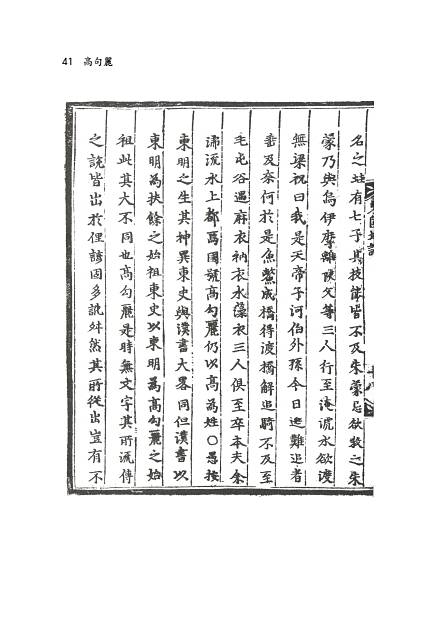 41 高句麗
名之 有七子其技能皆不及朱蒙忌欲殺之朱
蒙乃與鳥伊摩離陜父等三人行至淹㴲水欲渡
無梁祝曰我是天帝子河伯外孫今日逃難追者
垂及奈何於是魚鼈成橋得渡橋解追騎不及至
毛屯谷遇麻衣衲衣水藻衣三人俱至卒本夫余
沸流水上都焉國號高句麗仍以高爲姓○愚按
東明之生其神異東史與漢書大畧同但漢書以
東明為扶餘之始祖東史以東明爲高勾麗之始
祖此其大不同也高勾麗是時無文字其所流傳
之說皆出於俚諺因多訛舛然其所從出豈有不